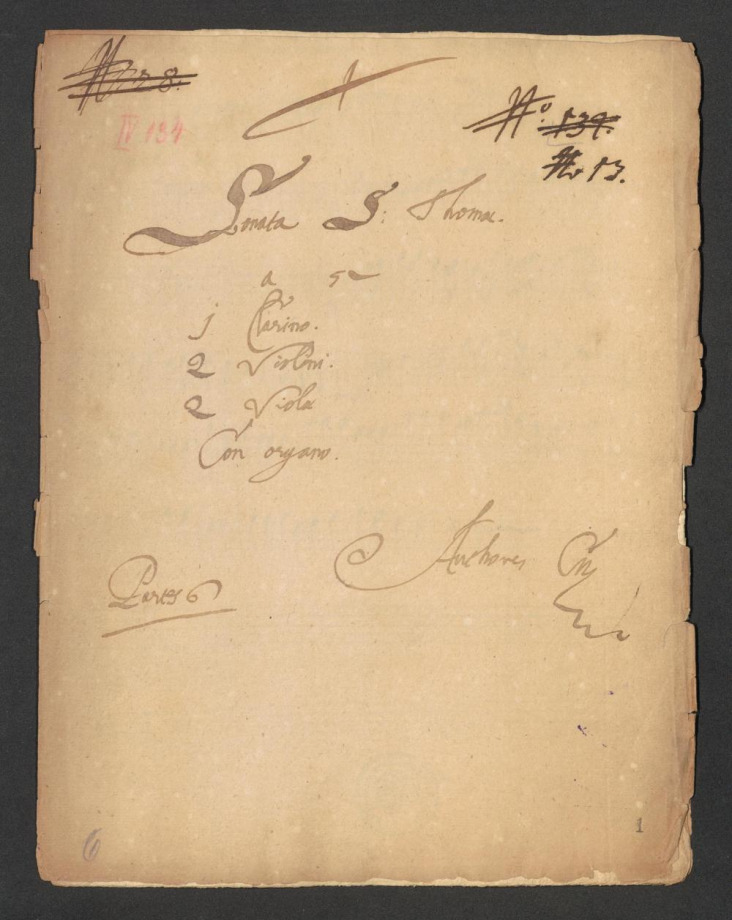 No 8.
IV 134
No. 139.
No 13.
Sonata S: Thomæ.
a 5
1 Clarino.
2 Violini.
2 Viola
Con organo.
Authore
Partes 6
1
6